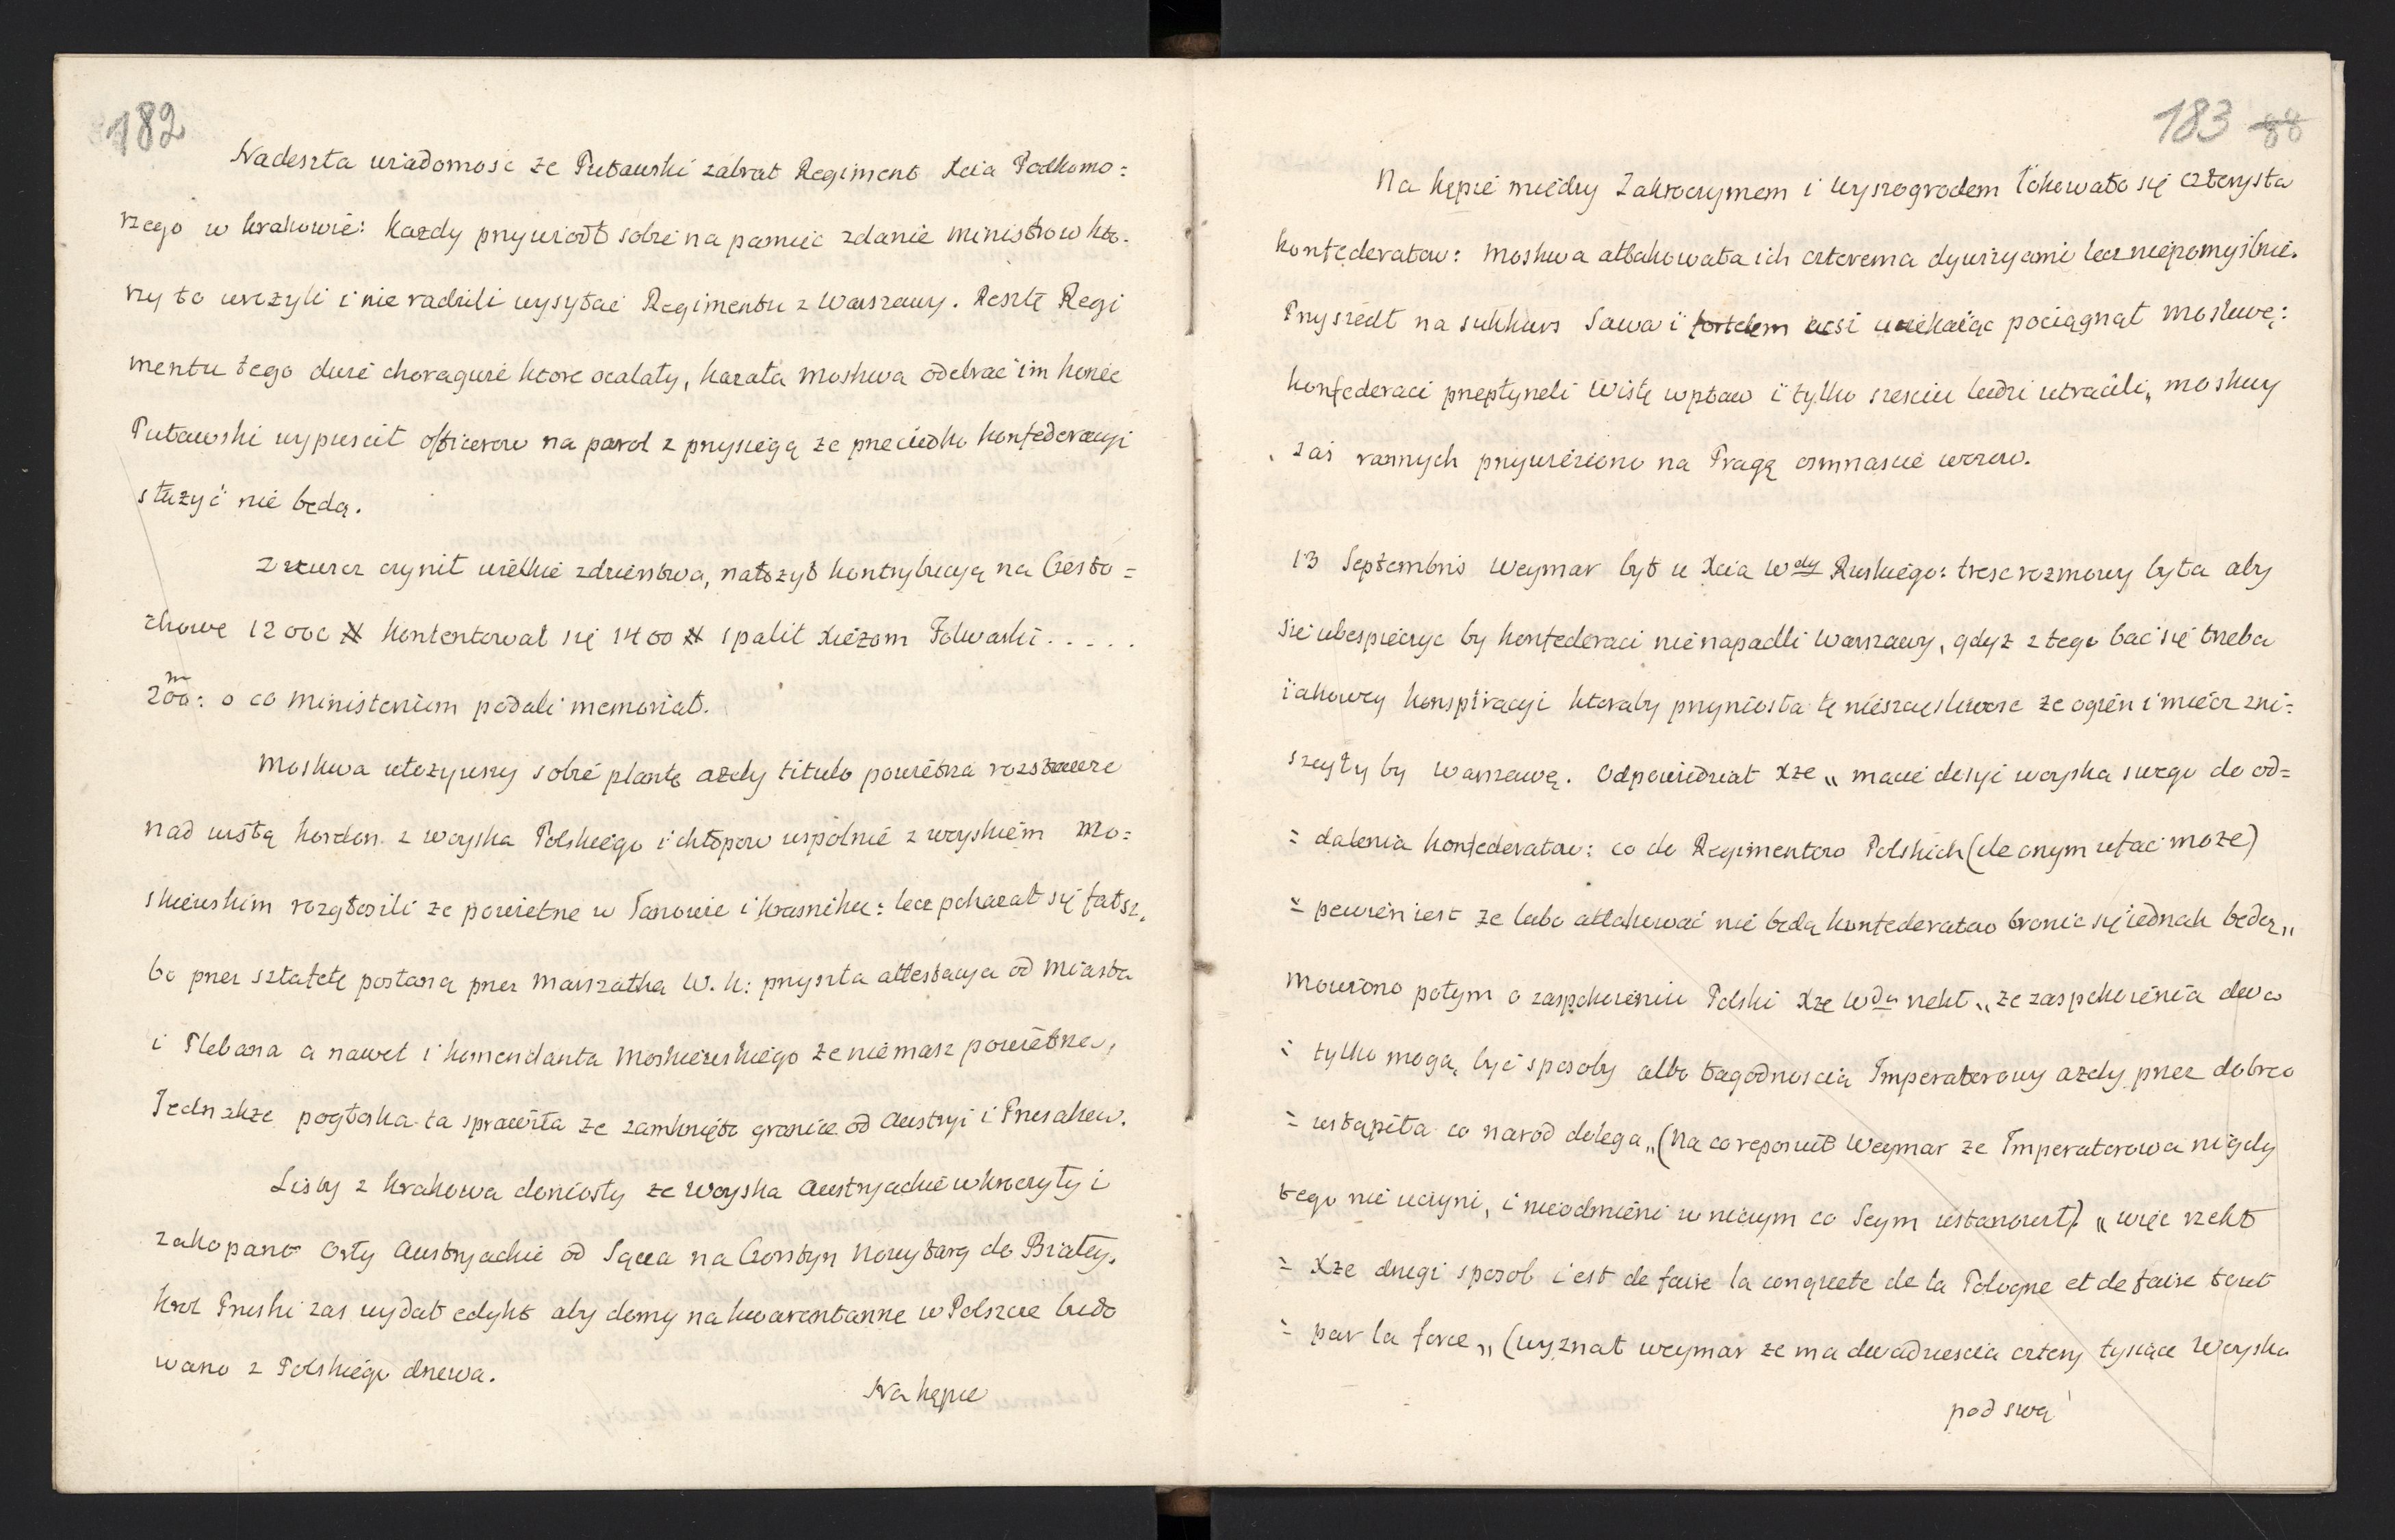 182
Nadeszła wiadomosc ze Puławski zabrał Regiment Xcia Podkomo:
rzego w krakowie: każdy przywiodł sobie na pamięc zdanie ministrow kto-
rzy to wrozyli i nie radzili wysyłać Regimentu z Warszawy. Resztę Regi
mentu tego dwie choragwie ktore ocalały, kazała Moskwa odebrac im konie
Puławski wypuscił officerow na parol z przysiegą ze przeciwko konfederacyi
służyć nie będą.
czynił wielkie zdzierstwa, nałożył kontrybucyą na Czesto=
chowe 12000 # kontentował się 1400 # spalił Xiężom Folwarki . . . . .
200:m o co Ministerium podali memoriał.
Moskwa ułożywszy sobie plantę azeby titulo powietrza rozstawic
nad wisłą kordon z woyska Polskiego i chłopow wspolnie z woyskiem Mo=
skiewskim rozgłosili ze powietrze w Janowie i krasniku: lecz pokazał się fałsz,
bo przez sztafetę posłaną przez Marszałka W. k: przyszła attestacya od Miasta
i Plebana a nawet i komendanta Moskiewskiego ze niemasz powietrza,
Jednakże pogłoska ta sprawiła ze zamknięto granice od Austryi i Prusakow.
Listy z krakowa doniosły ze Woyska Austryackie wkroczyły i
zakopano Orły Austryackie od Sącza na Czorsztyn Nowytarg do Białey.
krol Pruski zas wydał edykt aby domy na kwarantanne w Polszcze budo
wano z Polskiego drzewa.
Na kępie
183 88
Na kępie między Zakroczymem i wyszogrodem lokowało się czterysta
konfederatow: Moskwa attakowała ich czterema dywizyami lecz niepomyślnie.
Przyszedł na sukkurs Sawa i fortelem uciekaiąc pociągnął Moskwę:
konfederaci przepłyneli Wisłę wpław i tylko szesciu ludzi utracili, Moskwy
zaś rannych przywieziono na Pragę osmnascie wozow.
13 Septembris Weymar był u Xcia Wdy Ruskiego: tresc rozmowy była aby
sie ubespieczyc by konfederaci nie napadli Warszawy, gdyż z tego bać się trzeba
iakowey konspiracyi ktoraby przyniosła tę nieszczęsliwosc ze ogień i miecz zni:
szczyły by Warszawę. Odpowiedział Xże „ macie dosyć woyska swego do od=
= dalenia konfederatow: co do Regimentow Polskich (ile onym ufac może)
= pewien iest że lubo attakować nie będą konfederatow bronic się iednak będą„
Mowiono potym o zaspokoieniu Polski Xże Wda rzekł „ że zaspokoienia dwa
= tylko mogą być sposoby albo łagodnoscią Imperatorowy azeby przez dobroc
= ustąpiła co narod dolega„ (Na co reponił Weymar ze Imperatorowa nigdy
tego nie uczyni, i nieodmieni w niczym co Seym ustanowił) „ więc rzekł
= Xże drugi sposob iest de faire la conquete de la Pologne et de faire tout
= par la force „ (wyznał weymar ze ma dwadziescia cztery tysiące Woyska
pod swą